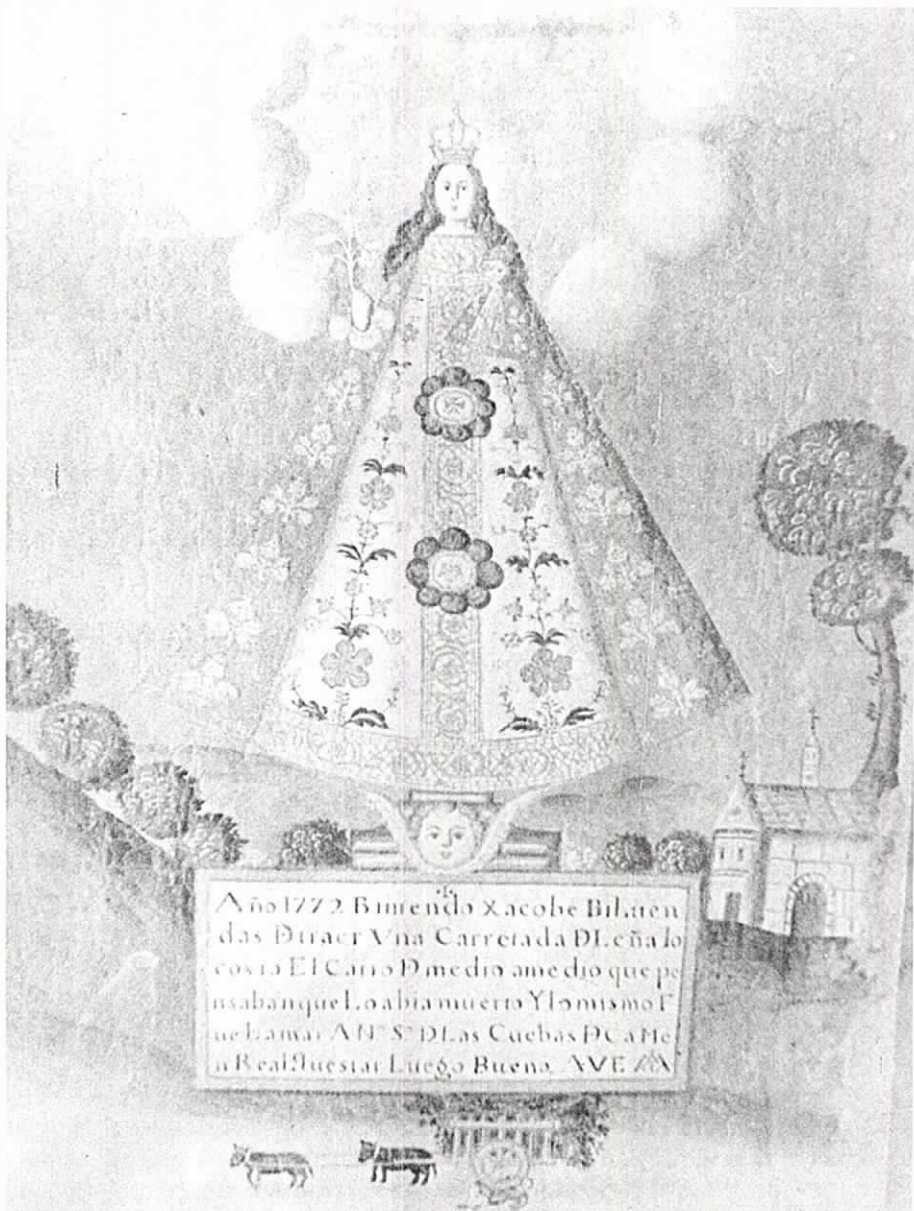 Año 1772 Biniendo Xacobe Bilaien
das D traer Vna Carretada D Leña lo
El Carro D medio amedio que pe
nsaban que Lo abia muerto Y lo mismo F
ue Lamar A Nª Sª D Las Cuebas D Ca Me
n Real Luego Bueno. AVE MA